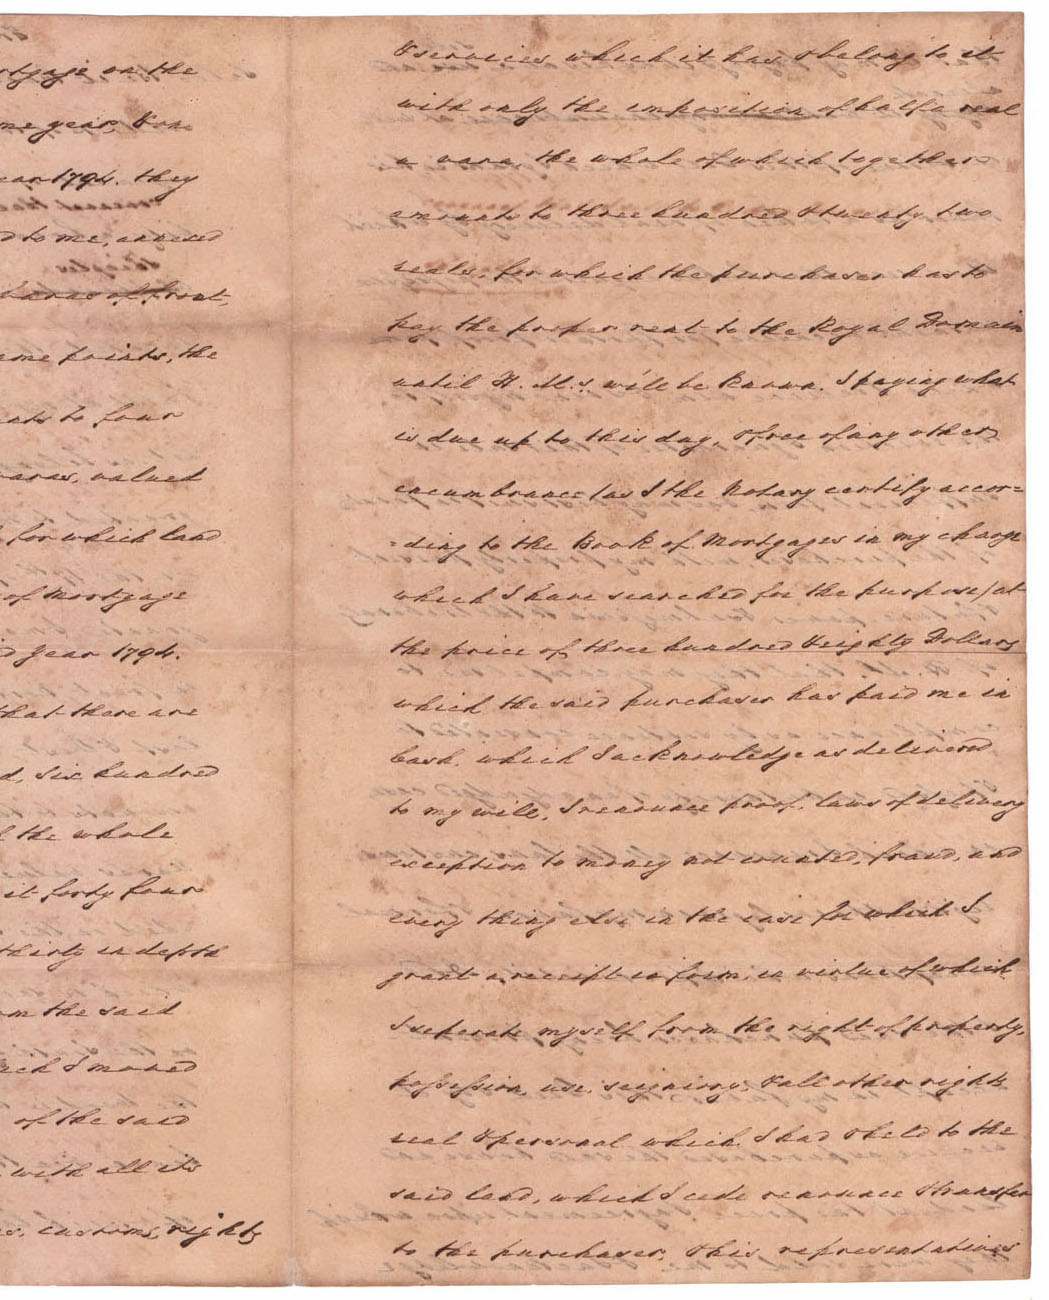 rtgage on the
me year, & on
ear 1794. they
d to me, annexed
baras of front,
ame points, the
to four
varas, valued
for which land
of Mortgage
d year 1794.
that there are
d, six hundred
the whole
it forty four
thirty in depth
om the said
ich I moved
of the said
with all its
customs, rights
& services which it has & belong to it
with only the imposition of half a real
a vara, the whole of which together
amounts to three hundred & twenty two
reals, for which the purchaser has to
pay the proper rent to the Royal Domain
until H. M.s. will be known. I paying what
is due up to this day, & free of any other
encumbrance (as I the Notary certify accor=
=ding to the Book of Mortgages in my charge
which I have searched for the purpose) at
the price of three hundred & eighty Dollars
which the said purchaser has paid me in
Cash, which I acknowledge as delivered
to my will, I renounce proof, laws of delivery
exception to money not counted, fraud, and
every thing else in the case for which I
grant a receipt in form, in virtue of which
I seperate myself form the right of property,
possession, use, seigniory, & all other rights
real & personal which I had & held to the
said land, which I cede renounce & transfer
to the purchaser, & his representatives